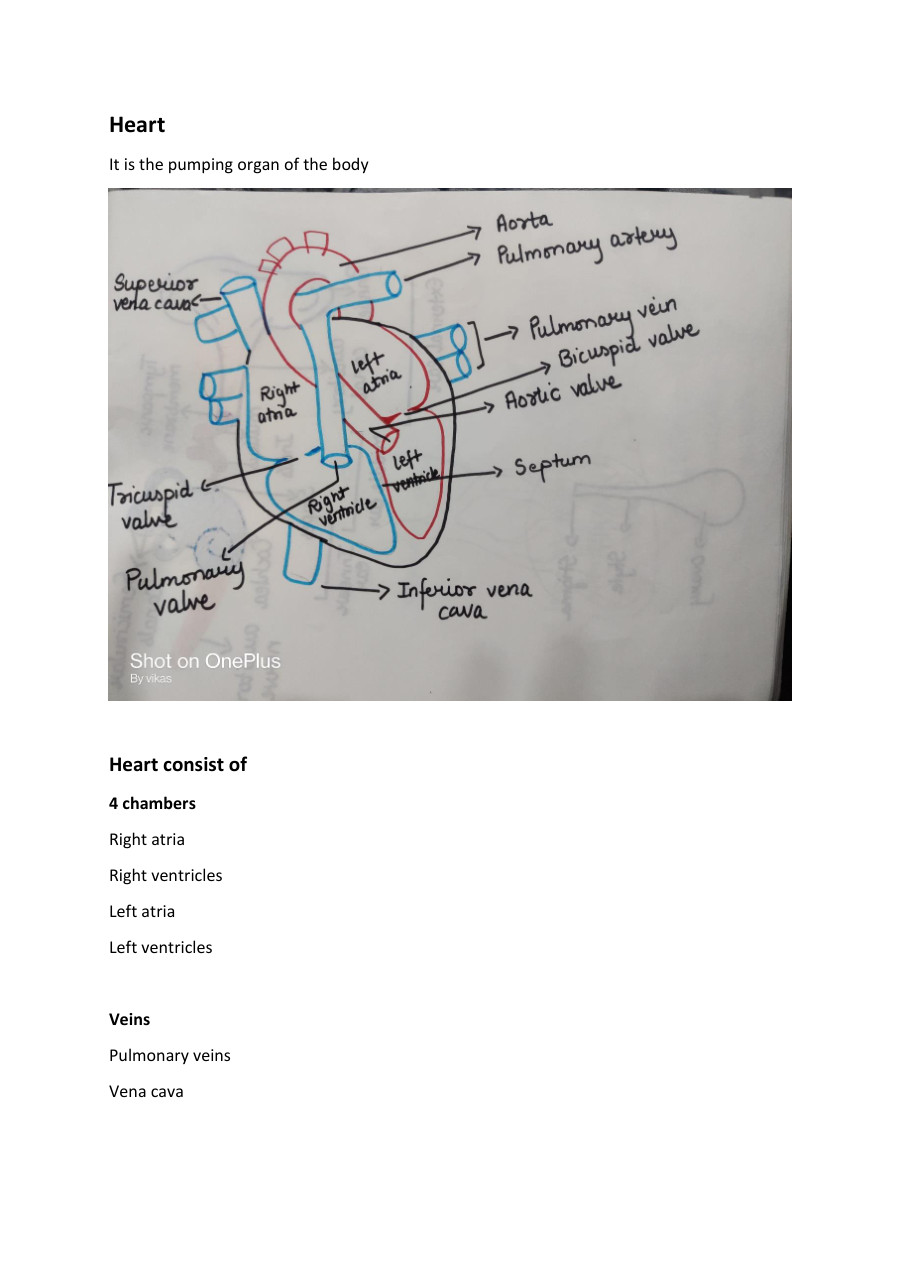 Heart
It is the pumping organ of the body
Aorta
Pulmonary artery
Superior
vena cava
Pulmonary vein
Bicuspid valve
Aortic valve
Left
atria
Right
atria
Left
ventricle
Septum
Tricuspid
valve
Right
ventricle
Pulmonary
valve
Inferior vena
cava
Shot on OnePlus
By vikas
Heart consist of
4 chambers
Right atria
Right ventricles
Left atria
Left ventricles
Veins
Pulmonary veins
Vena cava